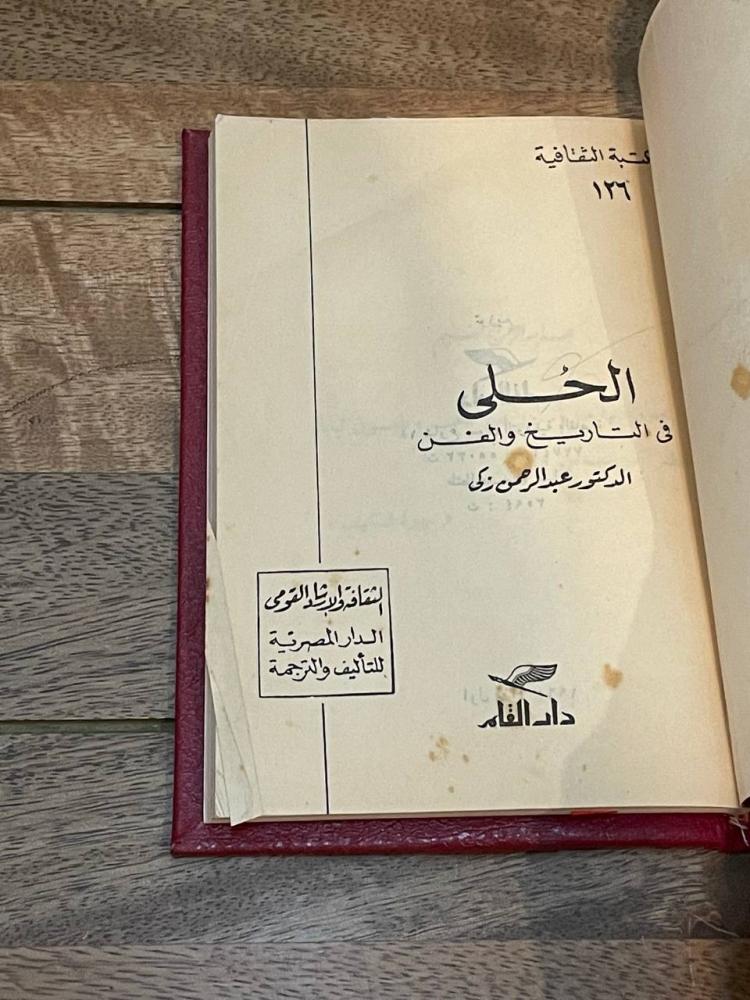 كتبة الثقافية
١٢٦
الحُلى
فى التاريخ والفن
الدكتور عبد الرحمن زكى
الثقافة والإرشاد القومى
الدار المصرية
للتأليف والترجمة
دار القلم